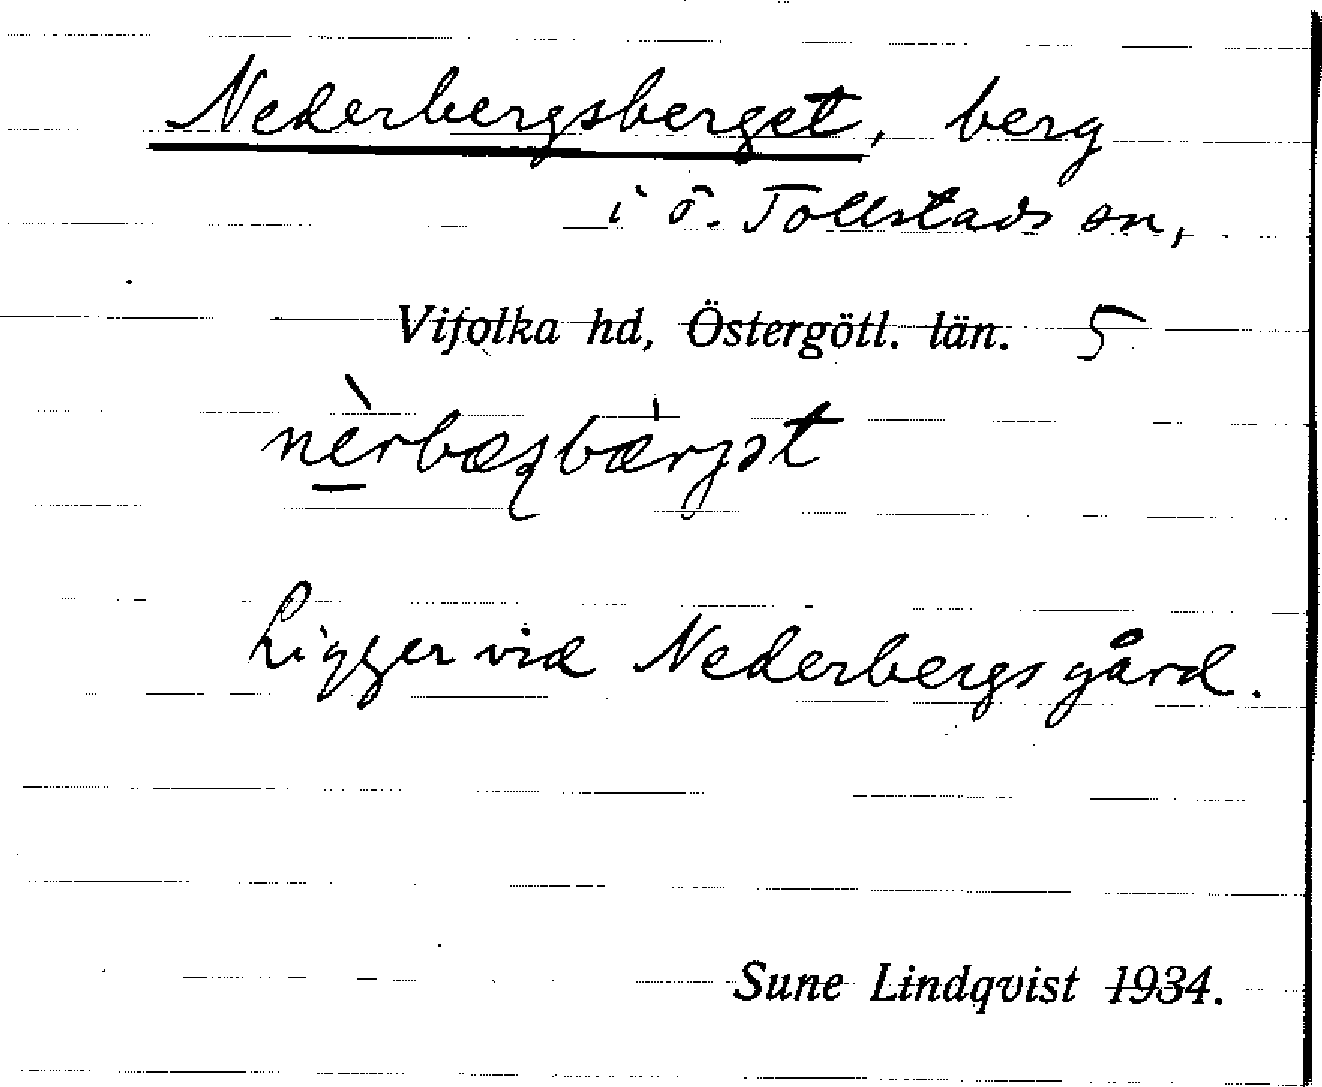 Nederbergsberget, berg
i Ö. Tollstads sn,
Vifolka hd, Östergötl. län. 5
Ligger vid Nederbergs gård.
Sune Lindqvist 1934.